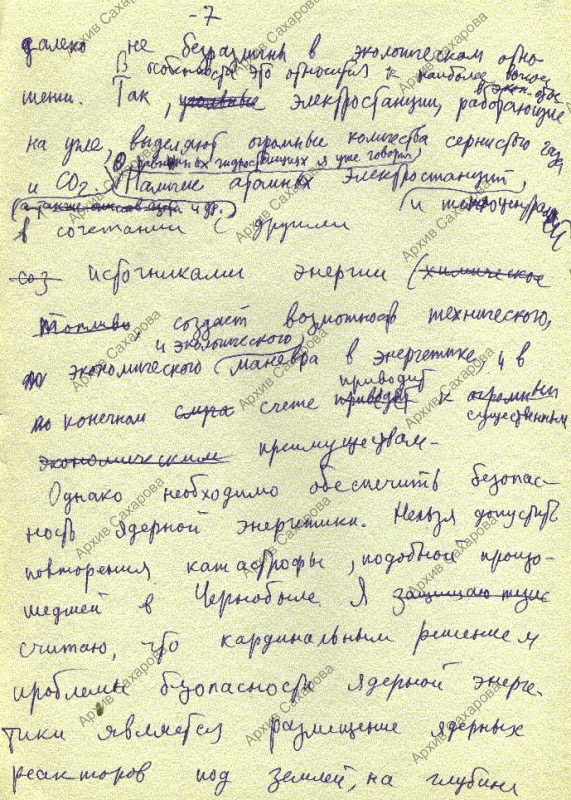 - 7
далеко не безразличны в экологическом отно-
В особенности это относится к наиболее
шении. Так, угольные электростанции, работающие
на угле, выделяют огромные количества сернистого газа
О равнинных гидростанциях я уже говорил
и CO2. Наличие атомных электростанций,
(а также и др.) и теплоцентралей
в сочетании с другими
соз источниками энергии (химическое
топливо, создаст возможность технического,
и экологического
экономического маневра в энергетике, и в
приводит
по конечном счете приводят к огромным
существенным
экономическим преимуществам.
Однако необходимо обеспечить безопас-
ность ядерной энергетики. Нельзя допустить
повторения катастрофы, подобной произо-
шедшей в Чернобыле. Я защищаю тезис
считаю, что кардинальным решением
проблемы безопасности ядерной энерге-
тики является размещение ядерных
реакторов под землей, на глубине
Архив Сахарова